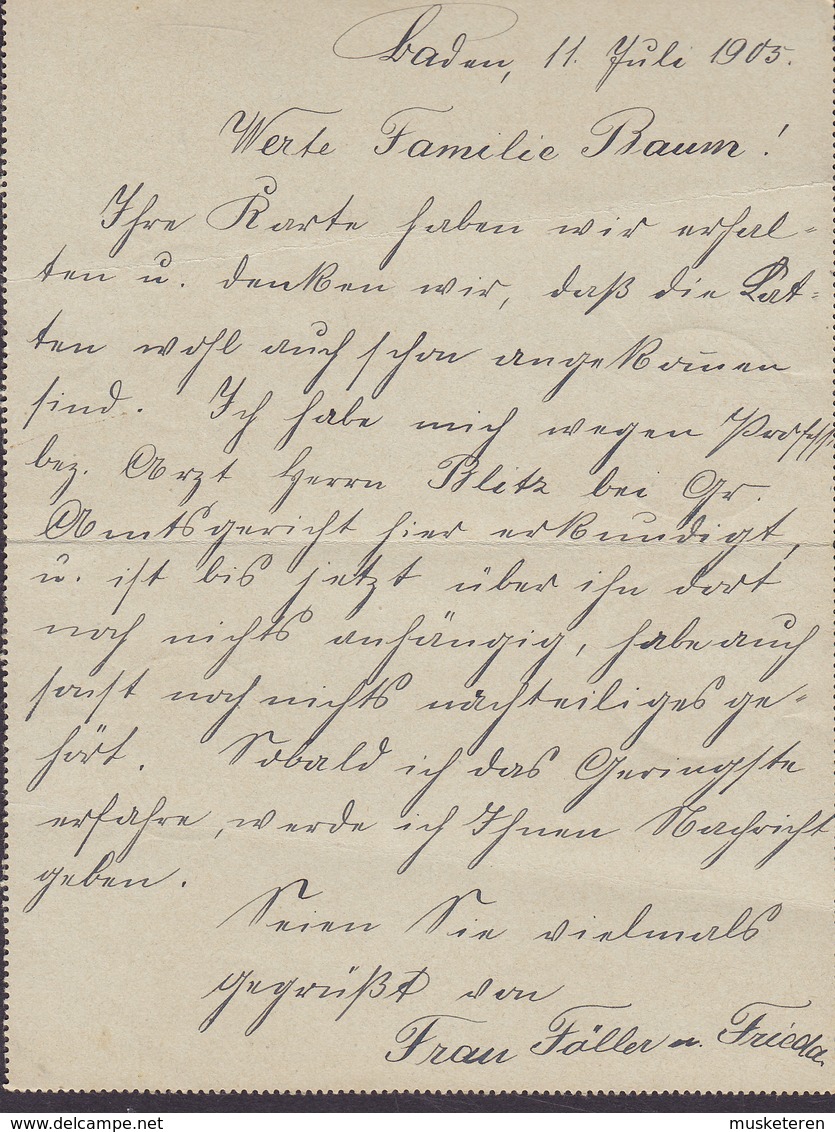 Baden, 11. Juli 1905.
Werte Familie Baum!
Ihre Karte haben wir erhal-
ten u. denken wir, daß die Lat-
ten wohl auch schon angekom̅en
sind. Ich habe mich wegen
bez. Arzt Herrn Blitz bei Gr.
Amtsgericht hier erkundigt,
u. ist bis jetzt über ihn dort
noch nichts anhängig, habe auch
sonst noch nichts nachteiliges ge-
hört. Sobald ich das Geringste
erfahre, werde ich Ihnen Nachricht
geben.
Seien Sie vielmals
gegrüßt von
Frau Föller u. Frieda.
musketeren / delcampe.net